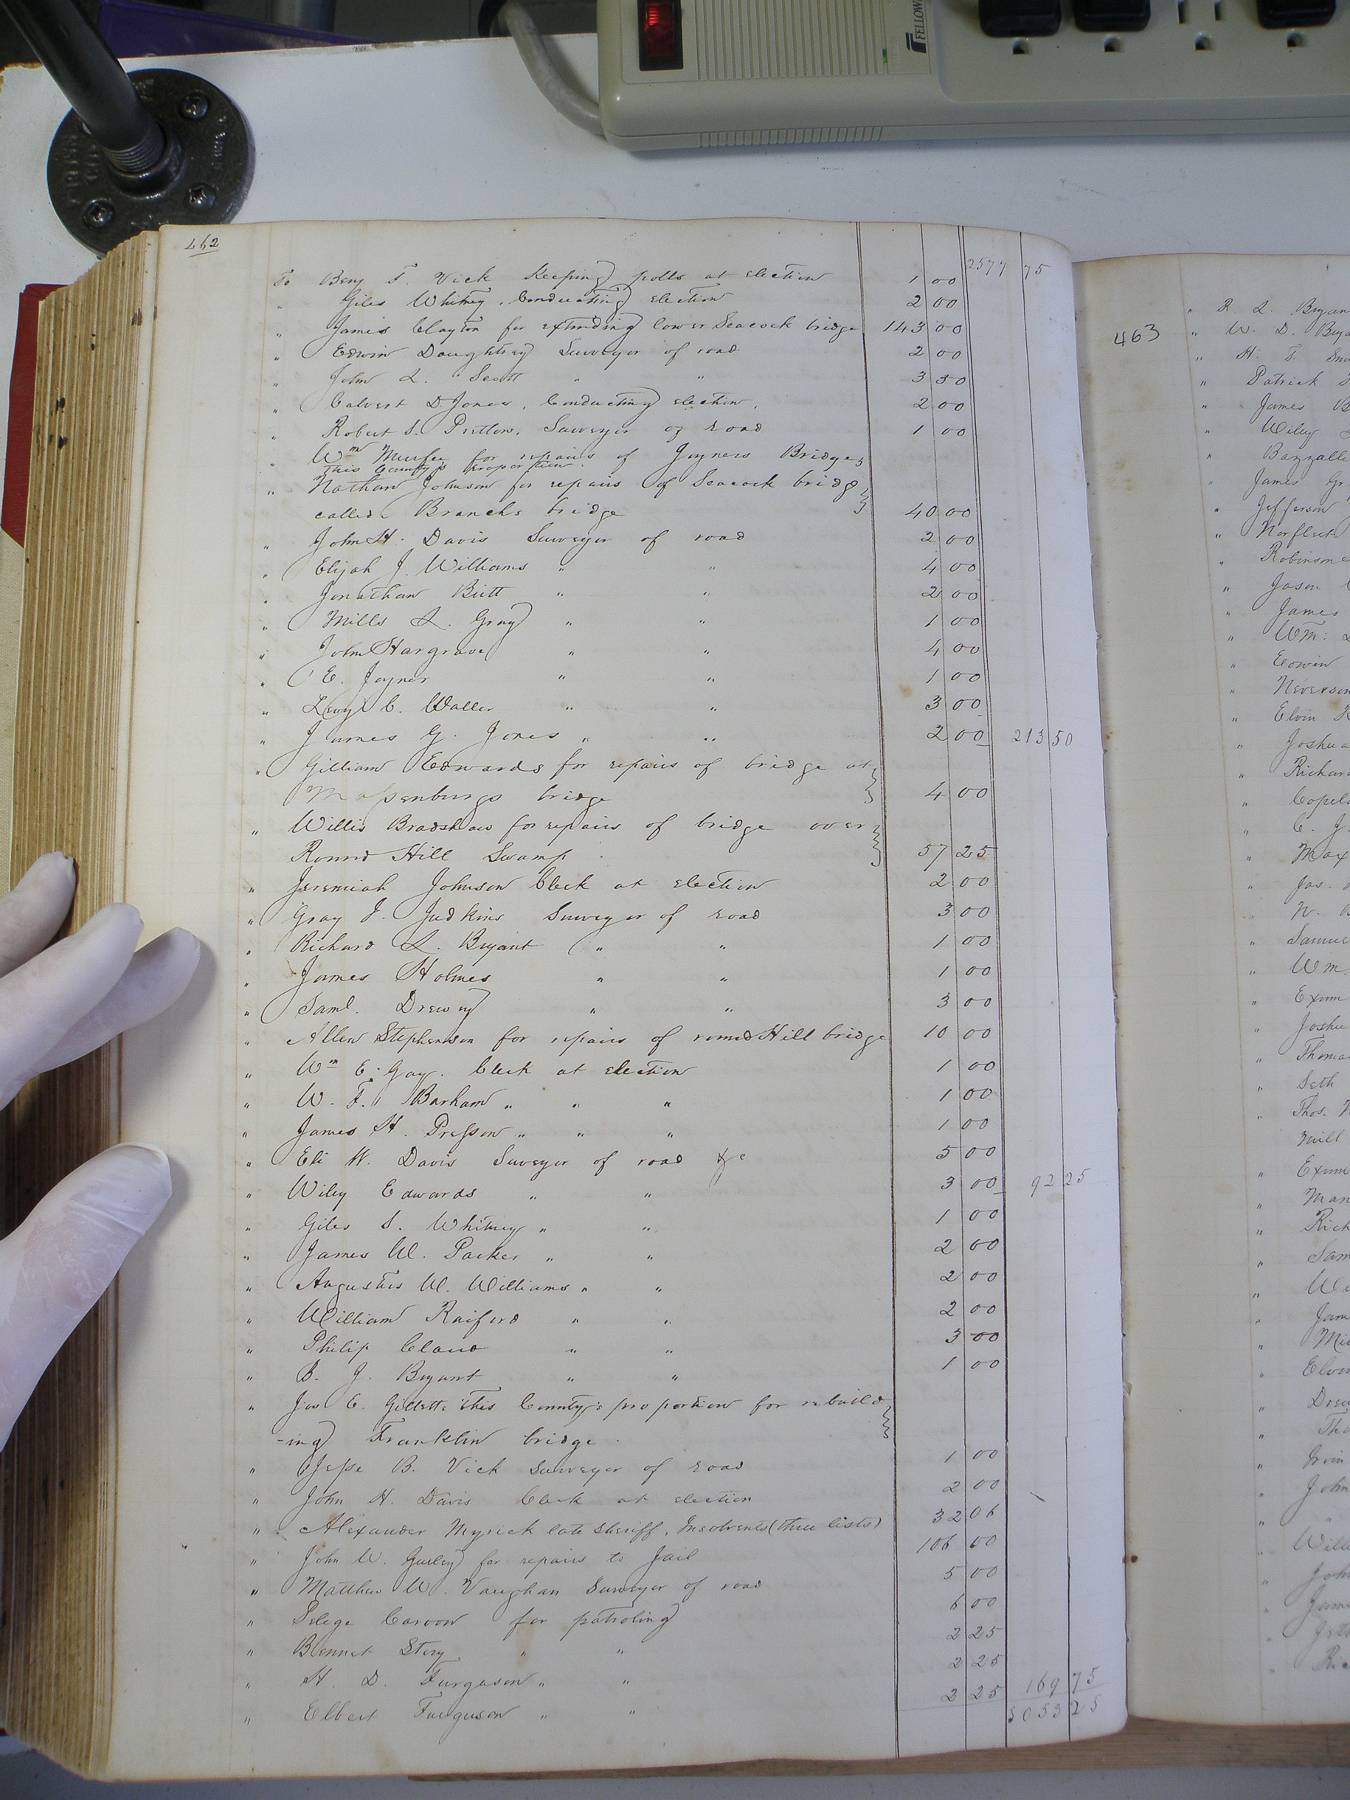 462
2577 75
To Benj T. Vick Keeping polls at election 1 00
" Giles Whitney, Conducting election 2 00
" James Clayton for extending lower Seacock bridge 143 00
" Edwin Daughtrey Surveyor of road 2 00
" John L. Scott " " 3 50
" Calvert D Jones, Conducting election, 2 00
" Robert S. Pretlow, Surveyor of road 1 00
" Wm Murfee for repairs of Joyners Bridge
this County's proportion.
" Nathan Johnson for repairs of Seacock bridge
called Branchs bridge 40 00
" John H. Davis Surveyor of road 2 00
" Elijah J. Williams " " 4 00
" Jonathan Britt " " 2 00
" Mills L. Gray " " 1 00
" John Hargrave " " 4 00
" E. Joyner " " 1 00
" Levy C. Waller " " 3 00
" James G. Jones " " 2 00 213 50
" Gilliam Edwards for repairs of bridge at
Massenburgs bridge 4 00
" Willis Bradshaw for repairs of bridge over
Round Hill Swamp 57 25
" Jeremiah Johnson Clerk at election 2 00
" Gray J. Judkins Surveyor of road 3 00
" Richard L. Bryant " " 1 00
" James Holmes " " 1 00
" Saml. Drewry " " 3 00
" Allen Stephenson for repairs of round Hill bridge 10 00
" Wm E. Gay. Clerk at election 1 00
" W. F. Barham " " " 1 00
" James H. Presson " " " 1 00
" Eli H. Davis Surveyor of road &c 5 00
" Wiley Edwards " " 3 00 92 25
" Giles S. Whitney " " 1 00
" James W. Parker " " 2 00
" Augustus W. Williams " " 2 00
" William Raiford " " 2 00
" Philip Claud " " 3 00
" B. J. Bryant " " 1 00
" Jos E. Gillette this County's proportion for rebuild
-ing Franklin bridge.
" Jesse B. Vick Surveyor of road 1 00
" John H. Davis Clerk at election 2 00
" Alexander Myrick late sheriff. Insolvents (three lists) 32 06
" John W. Gurley for repairs to Jail 106 00
" Matthew W. Vaughan Surveyor of road 5 00
" Pelege Carson for patroling 6 00
" Bennet Story " " 2 25
" H. D. Furgason " " 2 25
" Elbert Furguson " " 2 25 169 75
3053 25
463
" R L. Bryan
" W. D.
" H. T.
" Patrick
" James
" Wiley
"
" James
" Jefferson
" Norfleet
" Robinson
" Jason
" James
" Wm:
" Edwin
"
" Elvin
" Joshua
" Richard
"
" E. J.
" Max
" Jas.
" N.
" Samuel
" Wm.
" Exum
" Joshu
" Thomas
" Seth
" Thos.
" Exum
" Man
" Rich
" Sam
FELLOWES